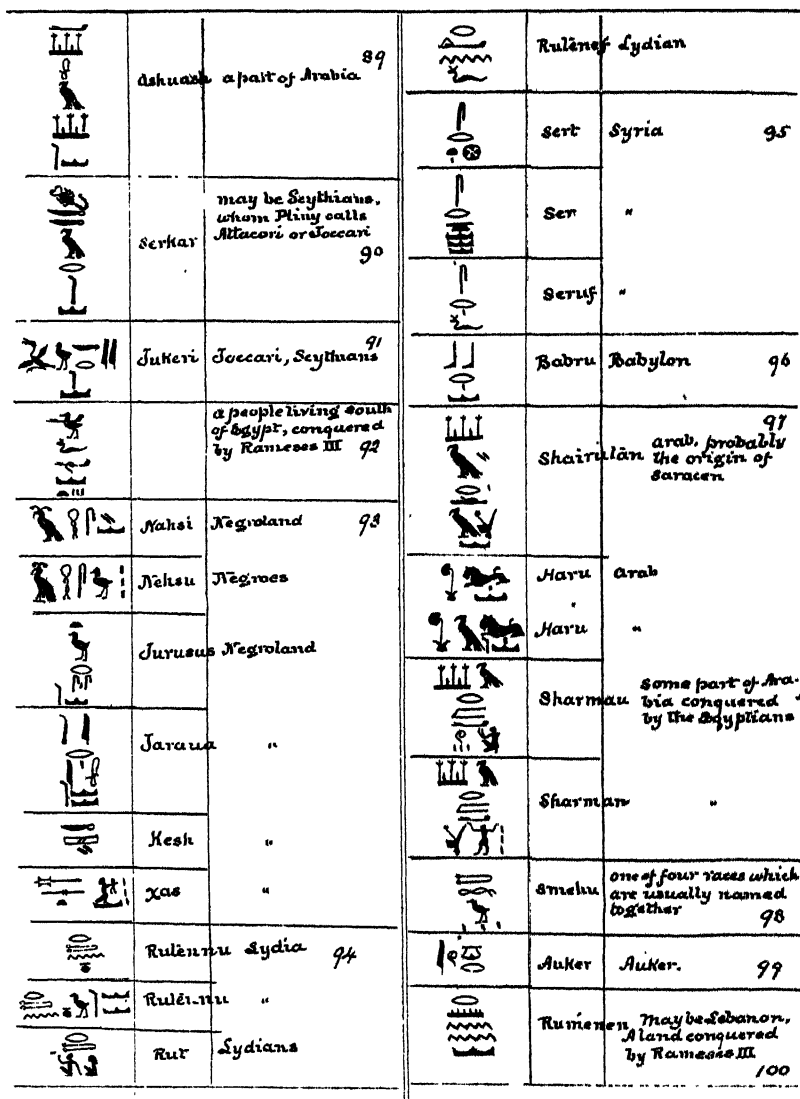 89
Ashuash a part of Arabia
may be Scythians,
whom Pliny calls
Attacori or Toccari
Serkar
90
91
Tukeri Toccari, Scythians
a people living south
of Egypt, conquered
by Rameses III 92
Nahsi Negroland 93
Nehsu Negroes
Turusus Negroland
Taraua "
Kesh "
Xas "
Rutennu Lydia 94
Rutennu "
Rut Lydians
Rutenef Lydian
Sert Syria 95
Ser "
Seruf "
Babru Babylon 96
97
Shairutan arab, probably
the origin of
Saracen
Haru arab
Haru "
Sharmau Some part of Ara-
bia conquered
by the Egyptians
Sharman "
one of four races which
Smehu are usually named
together 98
Auker Auker. 99
Rumenen may be Lebanon,
A land conquered
by Rameses III
100